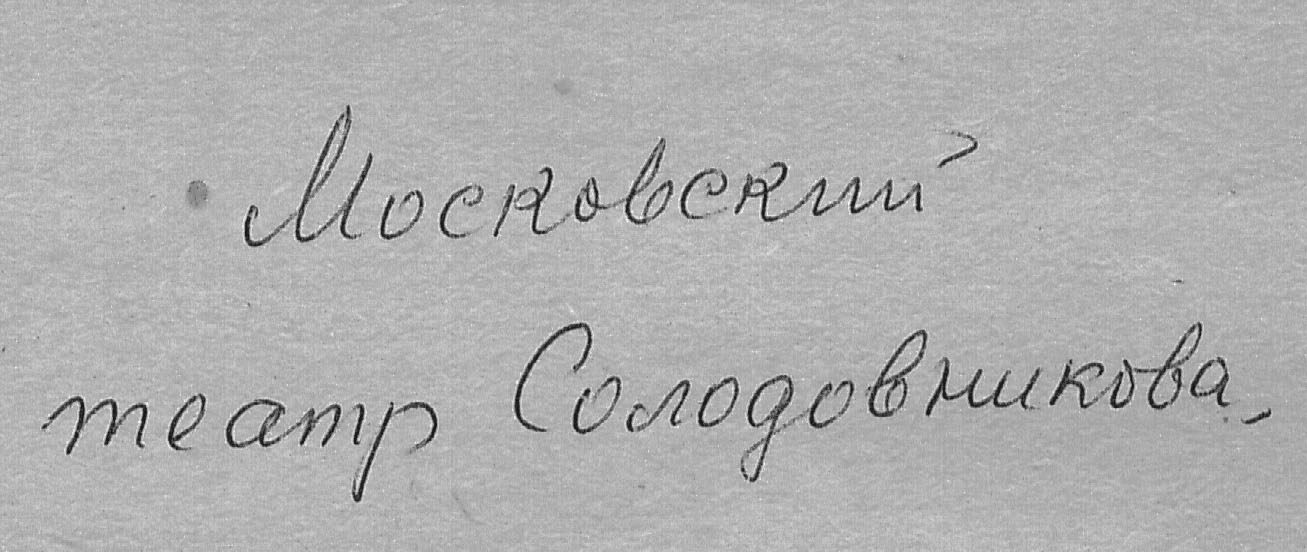 Московский
театр Солодовникова.